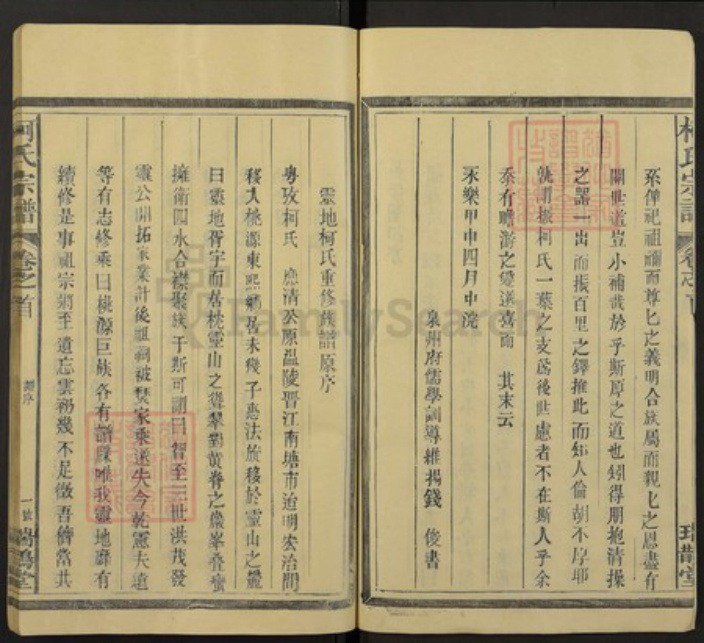 系俾祀祖禰而尊匕之義明合族屬而親匕之恩盡有
關世道豈小補哉於乎斯厚之道也矧得朋抱清操
之器一出而振百里之鐸推此而知人倫胡不厚耶
孰謂撥柯氏一葉之支為後世慮者不在斯人乎余
忝有瞻游之愛遂喜而 其末云
永樂甲申四月中浣
泉州府儒學訓導維揚錢 俊書
柯氏宗譜 卷之首
靈地柯氏重修族譜原序
粵攷柯氏 應清公原温陵晋江南塘市迨明宏治間
移入桃源東熙鄉居未幾子惠法旋移於靈山之麓
曰靈地胥宇而居枕靈山之聳翠對黄脊之巍峯叠巒
擁衛四水合襟聚族于斯可謂曰智至三世洪茂發
靈公開拓家業計後祖祠被焚家乘遂失今乾憲夫道
等有志修乘曰桃源巨族各有譜牒唯我靈地靡有
續修是事祖宗鄉至道忘雲礽幾不足徵吾儕當共
柯氏宗譜 卷之首 譜序 一號 瑞鵲堂
FamilySearch